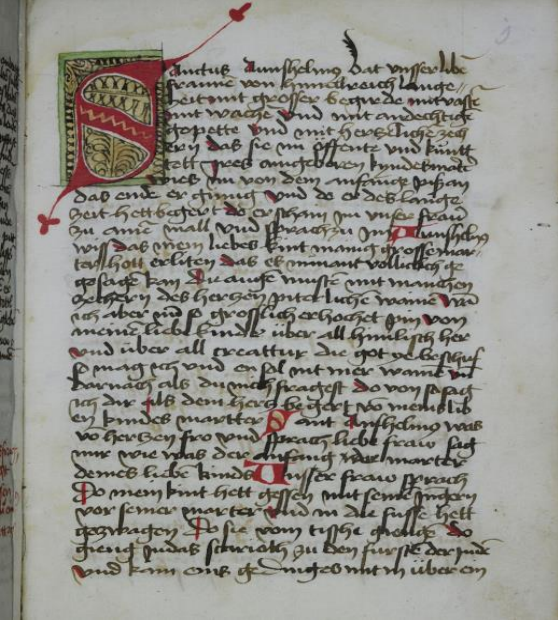 Sanctus Annshelmus bat unsser libe
frauwe von himelreich lange
zeit mit grosser begirde mit vaste
mit wache und mit andechtige
gepette und mit herczliche zech
ern das sie im öffente und kunt
tett
wies im von dem anfangk piss an
das ende er ging und do er des lange
zeit hett begert do erschain im unser frau
zu aine mall und sprach zu im Annshelmus
wiss das mein liebes kint manig grosse mar
ter hott erliten das es nimant vollicklich ge
gesage kan Die augen musten mit manchen
zechern des herczen piterliche waine Wu
ich aber und so grosslich erhochet pin von
meine liebe kinde über all himlisch her
und über all creattur die got ye beschuf
so mag ich und en sol nit mer waine
darnach als du mich fragest do von so sag
ich dir als dem hercz begert vo meins lib
en kindes martter Sant Anshelmus was
vo herczen fro und sprach liebe fraw sag
mir wie was der anfang der marter
deines liebe kinds Unsser fraw sprach
Do mein kint hett gessen mit seine jugern
vor seiner marter und in die fusse hett
gezwagen Do sie vom tisshe gienge do
gieng judas schrioth zu den furste der jude
und kam eins gedinges mit in über ein